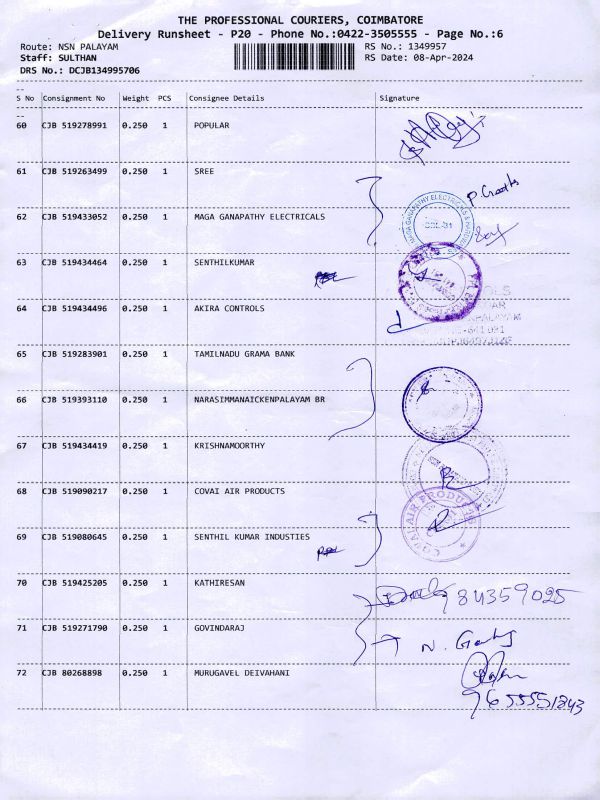 THE PROFESSIONAL COURIERS, COIMBATORE
Delivery Runsheet - P20 - Phone No.:0422-3505555 - Page No.:6
Route: NSN PALAYAM RS No.: 1349957
Staff: SULTHAN RS Date: 08-Apr-2024
DRS No.: DCJB134995706
S No Consignment No Weight PCS Consignee Details Signature
60 CJB 519278991 0.250 1 POPULAR
61 CJB 519263499 0.250 1 SREE
62 CJB 519433052 0.250 1 MAGA GANAPATHY ELECTRICALS
MAGA GANAPATHY ELECTRICALS &
63 CJB 519434464 0.250 1 SENTHILKUMAR
64 CJB 519434496 0.250 1 AKIRA CONTROLS
65 CJB 519283901 0.250 1 TAMILNADU GRAMA BANK
66 CJB 519393110 0.250 1 NARASIMMANAICKENPALAYAM BR
67 CJB 519434419 0.250 1 KRISHNAMOORTHY
68 CJB 519090217 0.250 1 COVAI AIR PRODUCTS
COVAI AIR PRODUCTS
69 CJB 519080645 0.250 1 SENTHIL KUMAR INDUSTIES
70 CJB 519425205 0.250 1 KATHIRESAN
984359025
71 CJB 519271790 0.250 1 GOVINDARAJ
72 CJB 80268898 0.250 1 MURUGAVEL DEIVAHANI
9655551843